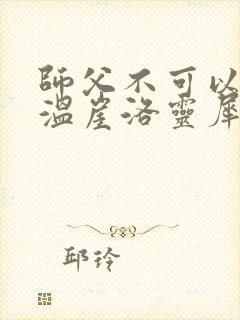 師父不可以
溫崖洛靈犀
邱玲